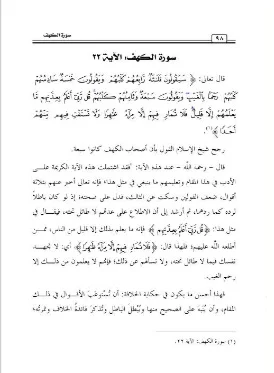 سورة الكهف
٩٨
سورة الكهف، الآية ٢٢
قال تعالى: ﴿ سَيَقُولُونَ ثَلَاثَةٌ رَّابِعُهُمْ كَلْبُهُمْ وَيَقُولُونَ خَمْسَةٌ سَادِسُهُمْ
كَلْبُهُمْ رَجْمًا بِالْغَيْبِ وَيَقُولُونَ سَبْعَةٌ وَثَامِنُهُمْ كَلْبُهُمْ قُل رَّبِّي أَعْلَمُ بِعِدَّتِهِم مَّا
يَعْلَمُهُمْ إِلَّا قَلِيلٌ فَلَا تُمَارِ فِيهِمْ إِلَّا مِرَاءً ظَاهِرًا وَلَا تَسْتَفْتِ فِيهِم مِّنْهُمْ
أَحَدًا ﴾(١).
رجح شيخ الإسلام القول بأن أصحاب الكهف كانوا سبعة.
قال – رحمه الله – عند هذه الآية: "فقد اشتملت هذه الآية الكريمة على
الأدب في هذا المقام وتعليمهم ما ينبغي في مثل هذا؛ فإنه تعالى أخبر عنهم بثلاثة
أقوال، ضعف القولين وسكت عن الثالث، فدل على صحته؛ إذ لو كان باطلاً
لرده كما ردهما، ثم أرشد إلى أن الاطلاع على عدتهم لا طائل تحته، فيقال في
مثل هذا: ﴿ قُل رَّبِّي أَعْلَمُ بِعِدَّتِهِم ﴾ فإنه ما يعلم بذلك إلا قليل من الناس، ممن
أطلعه الله عليه؛ فلهذا قال: ﴿ فَلَا تُمَارِ فِيهِمْ إِلَّا مِرَاءً ظَاهِرًا ﴾ أي: لا تجهد
نفسك فيما لا طائل تحته، ولا تسألهم عن ذلك؛ فإنهم لا يعلمون من ذلك إلا
رجم الغيب.
فهذا أحسن ما يكون في حكاية الخلاف: أن تُستوعَبَ الأقوال في ذلك
المقام، وأن يُنبَّه على الصحيح منها ويُبطَل الباطل وتُذكر فائدة الخلاف وثمرته؛
(١) سورة الكهف: الآية ٢٢.